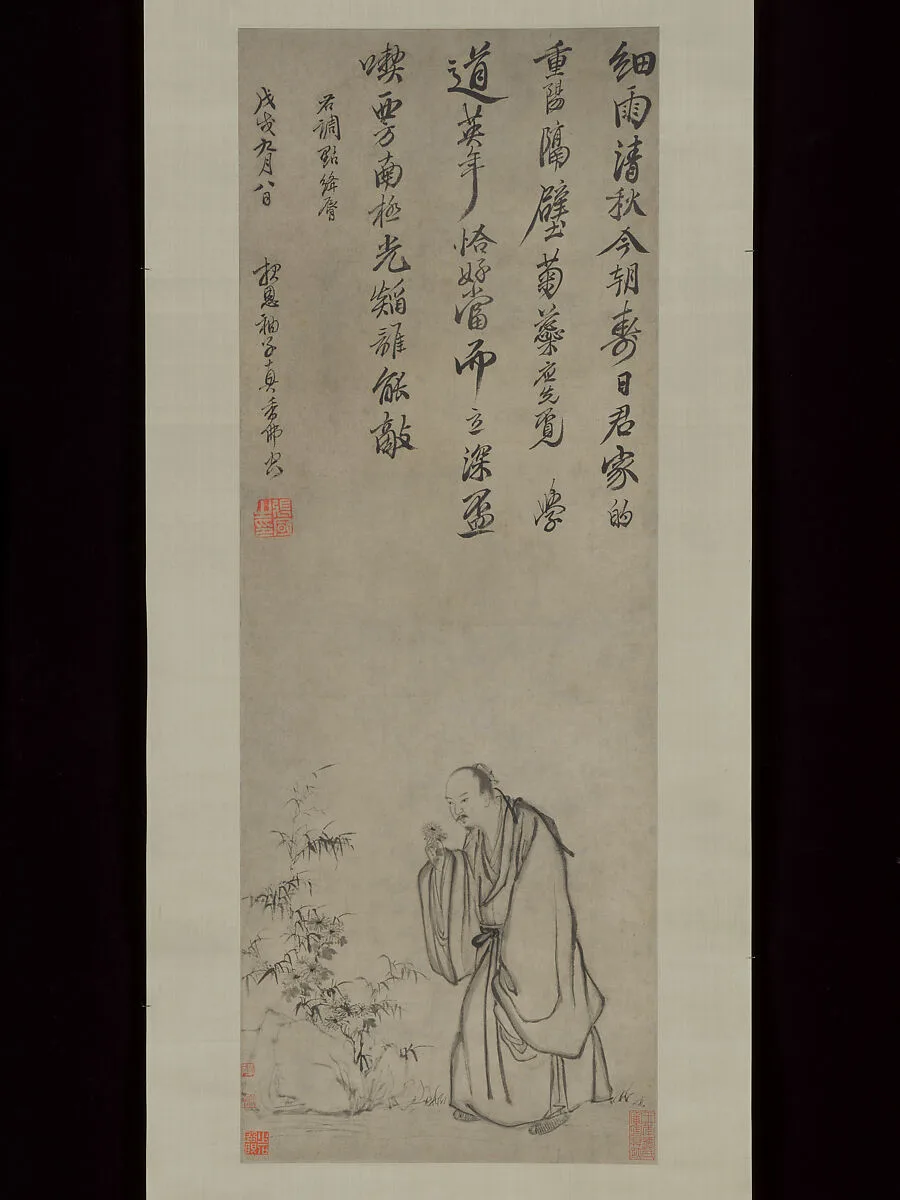 細雨清秋今朝壽日君家的
重陽隔壁菊蘂應先覓 學
道英年恰好當而立深盃
喫西方南極光熖誰能敵
右調點絳唇
戊戌九月八日 報恩衲子真香佛空